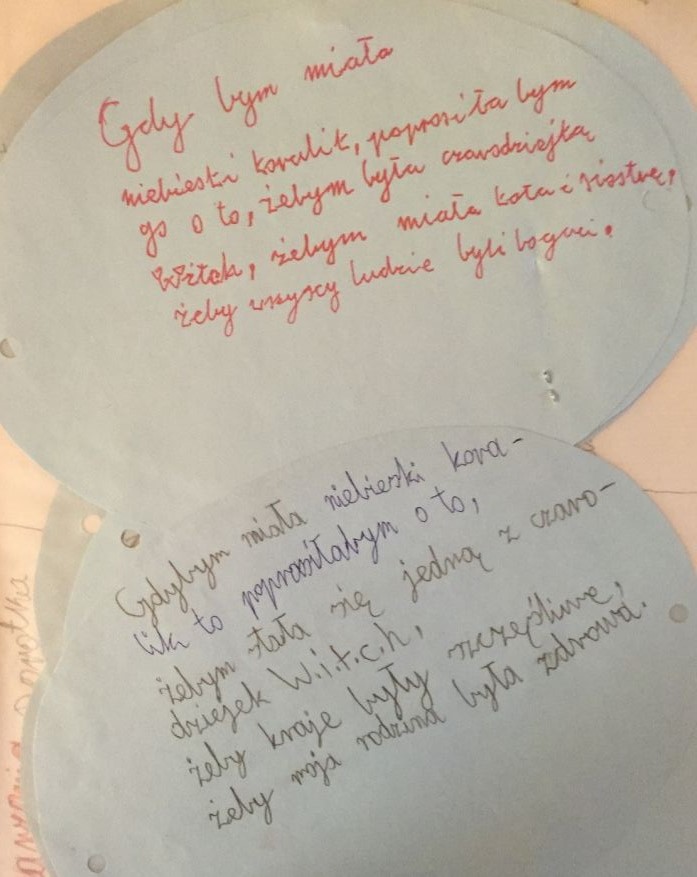 Gdy bym miała
niebieski koralik, poprosiła bym
go o to, żebym była czarodziejką
Witch, żebym miała kota i siostrę,
żeby wszyscy ludzie byli bogaci.
Gdybym miała niebieski kora-
lik to poprosiłabym o to,
żebym stała się jedną z czaro-
dziejek W.i.t.c.h,
żeby kraje były szczęśliwe,
żeby moja rodzina była zdrowa.